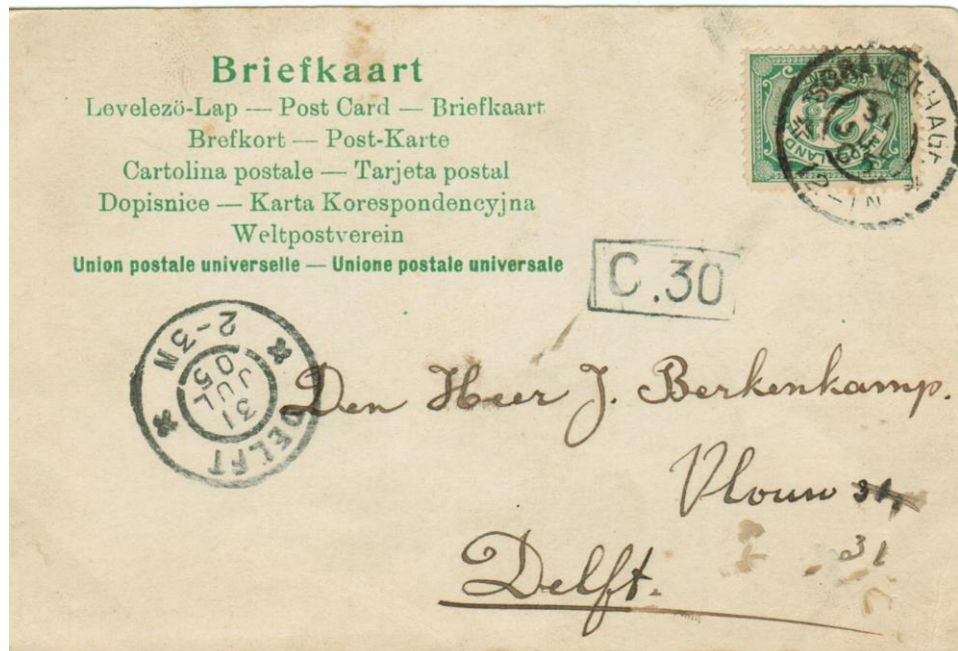 Briefkaart
Levelezö-Lap — Post Card — Briefkaart
Brefkort — Post-Karte
Cartolina postale — Tarjeta postal
Dopisnice — Karta Korespondencyjna
Weltpostverein
Union postale universelle — Unione postale universale
C.30
DELFT
31
JUL
05
2-3N
Den Heer J. Berkenkamp.
Vlouw 31,
31
Delft.